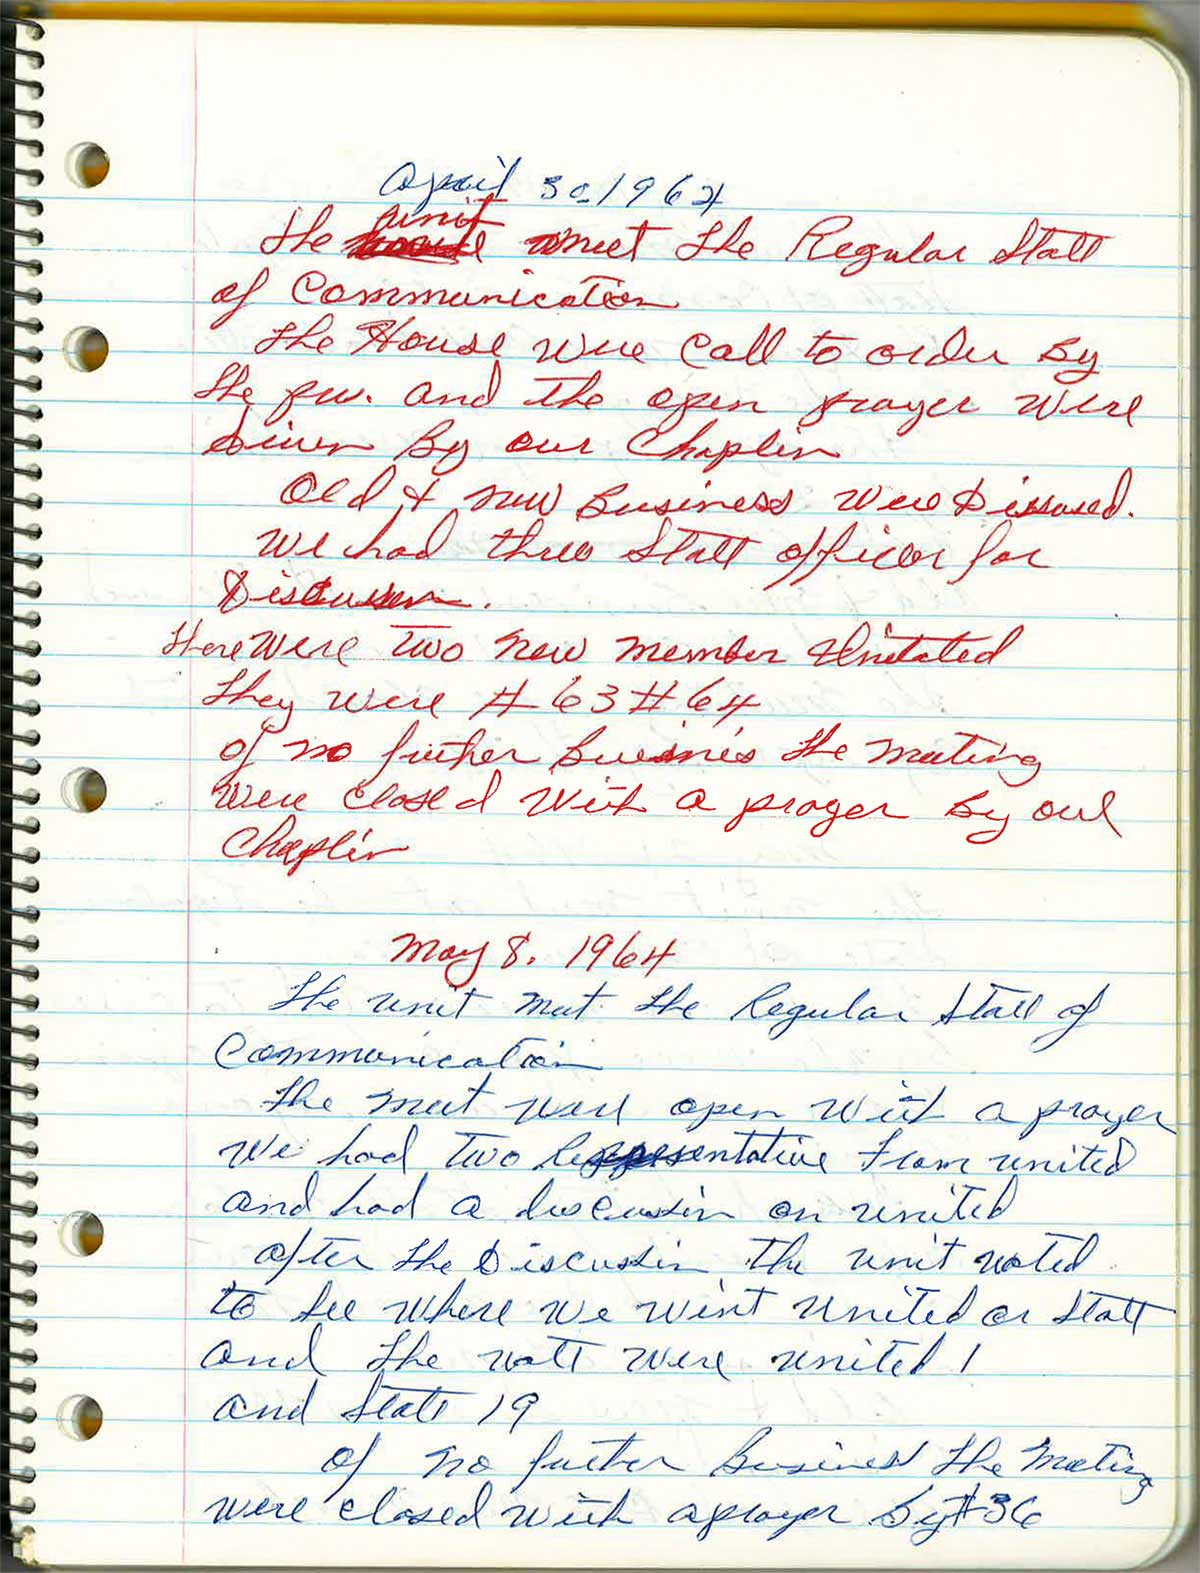 April 30, 1964
unit
The house meet the Regular Statt
of Communication
The House were call to order By
the pw. and the open prayer were
Given By our Chaplin
Old & new Business were Dissused.
We had three Statt officer for
Discussin.
There were Two new member Unitated
They were # 63 # 64
of no futher Busines the meeting
were closed with a prayer By our
Chaplin
May 8, 1964
The unit met the Regular Statt of
Communication
The meet were open with a prayer
We had two Representative From united
and had a discussin on united
after the Discussin the unit voted
to see where we went united or Statt
and the vott were united 1
and State 19
of no futher Business the meeting
were closed with a prayer By #36